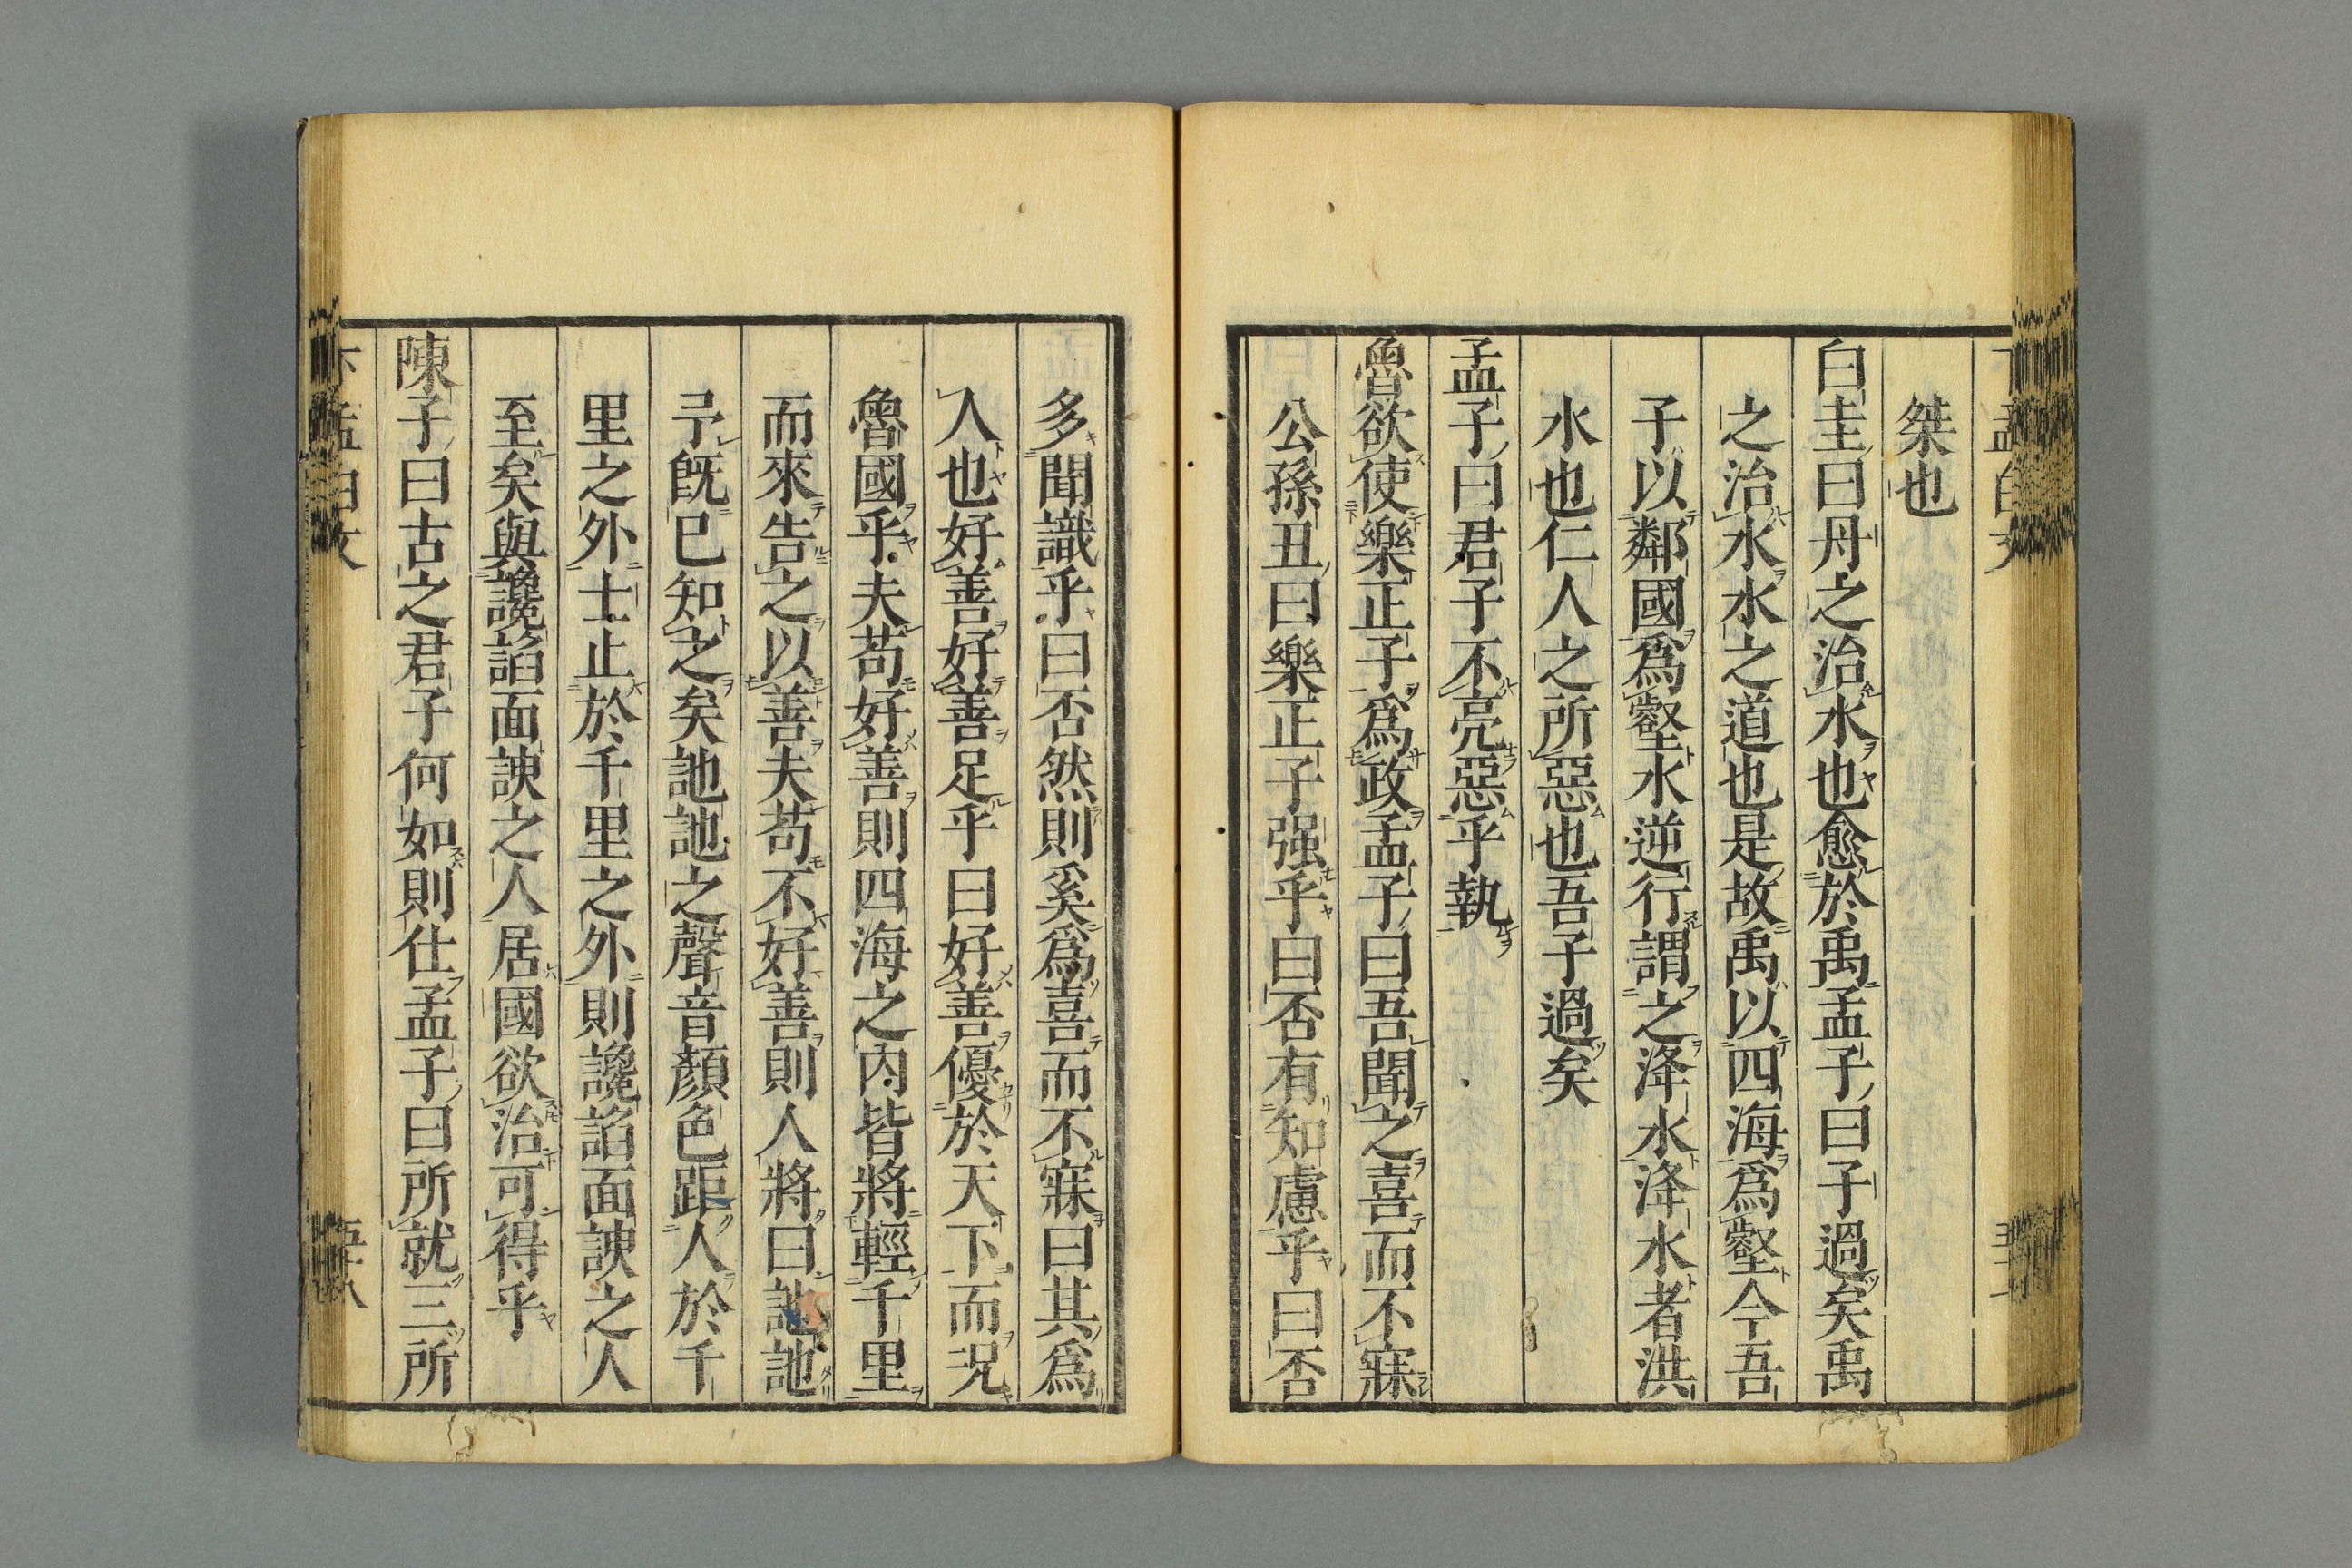 桀也
白圭曰丹之治水也愈於禹孟子曰子過矣禹
之治水水之道也是故禹以四海爲壑今吾
子以鄰國爲壑水逆行謂之洚水洚水者洪
水也仁人之所惡也吾子過矣
孟子曰君子不亮惡乎執
魯欲使樂正子爲政孟子曰吾聞之喜而不寐
公孫丑曰樂正子强乎曰否有知慮乎曰否
多聞識乎曰否然則奚爲喜而不寐曰其爲
人也好善好善足乎曰好善優於天下而況
魯國乎夫苟好善則四海之內皆將輕千里
而來告之以善夫苟不好善則人將曰訑訑
予既已知之矣訑訑之聲音顏色距人於千
里之外士止於千里之外則讒諂面諛之人
至矣與讒諂面諛之人居國欲治可得乎
陳子曰古之君子何如則仕孟子曰所就三所